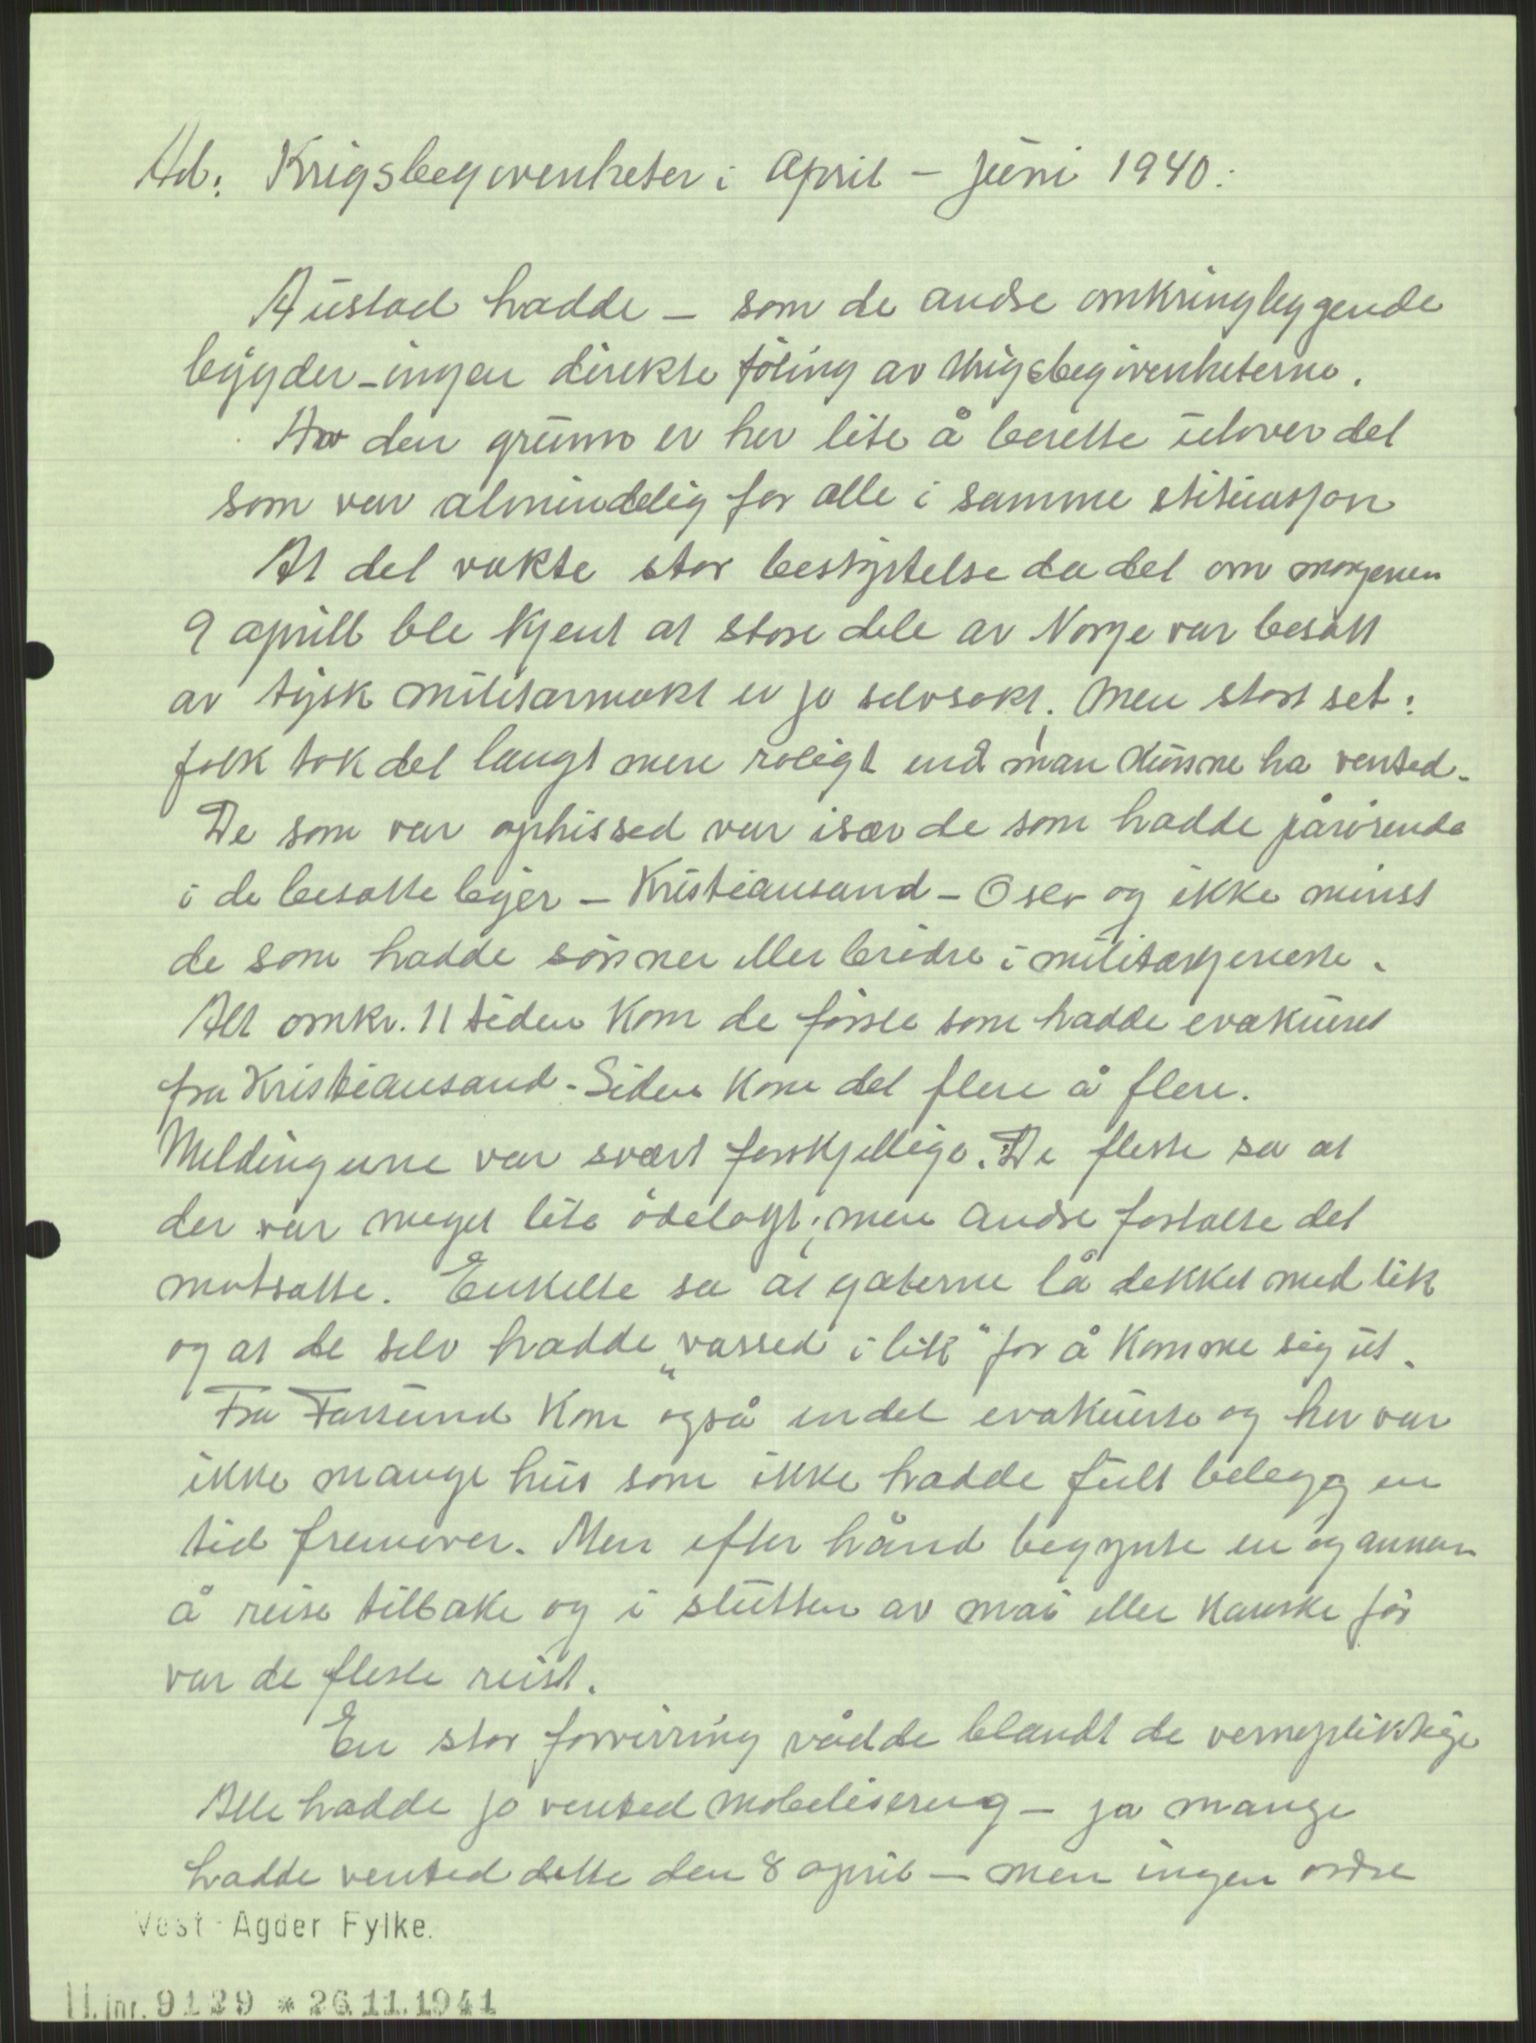 Ad: Krigsbegivenheter i April – Juni 1940:
Austad hadde – som de andre omkringlyggende
bygder – ingen direkte föling av krigsbegivenheterne.
Av den grunn er her lite å berette utover det
som var almindelig for alle i samme stituasjon
At det vakte stor bestyrtelse da det om morgenen
9 aprill ble kjent at store dele av Norge var besatt
av tysk militærmakt er jo selvsakt. Men stort set:
folk tok det langt mere roligt end man kunne ha vented.
De som var ophissed var især de som hadde pårörende
i de besatte byer – Kristiansand – Oslo og ikke minst
de som hadde sönner eller brödre i militærtjeneste.
Alt omkr. 11 tiden kom de förste som hadde evakuert
fra Kristiansand. Siden kom det flere å flere.
Meldingerne var svært forskjellige. De fleste sa at
der var meget lite ödelagt; men andre fortalte det
motsatte. Enkelte sa at gaterne lå dekket med lik
og at de selv hadde „vassed i lik" for å komme sig ut.
Fra Farsund kom også endel evakuerte og her var
ikke mange hus som ikke hadde fult belegg en
tid fremover. Men efter hånd begynte en og annen
å reise tilbake og i slutten av mai eller kanske för
var de fleste reist.
En stor forvirring rådde blandt de vernepliktige
Alle hadde jo vented mobilisering – ja mange
hadde vented dette den 8 april – men ingen ordre
Vest-Agder Fylke.
II. jnr. 9129 * 26.11.1941